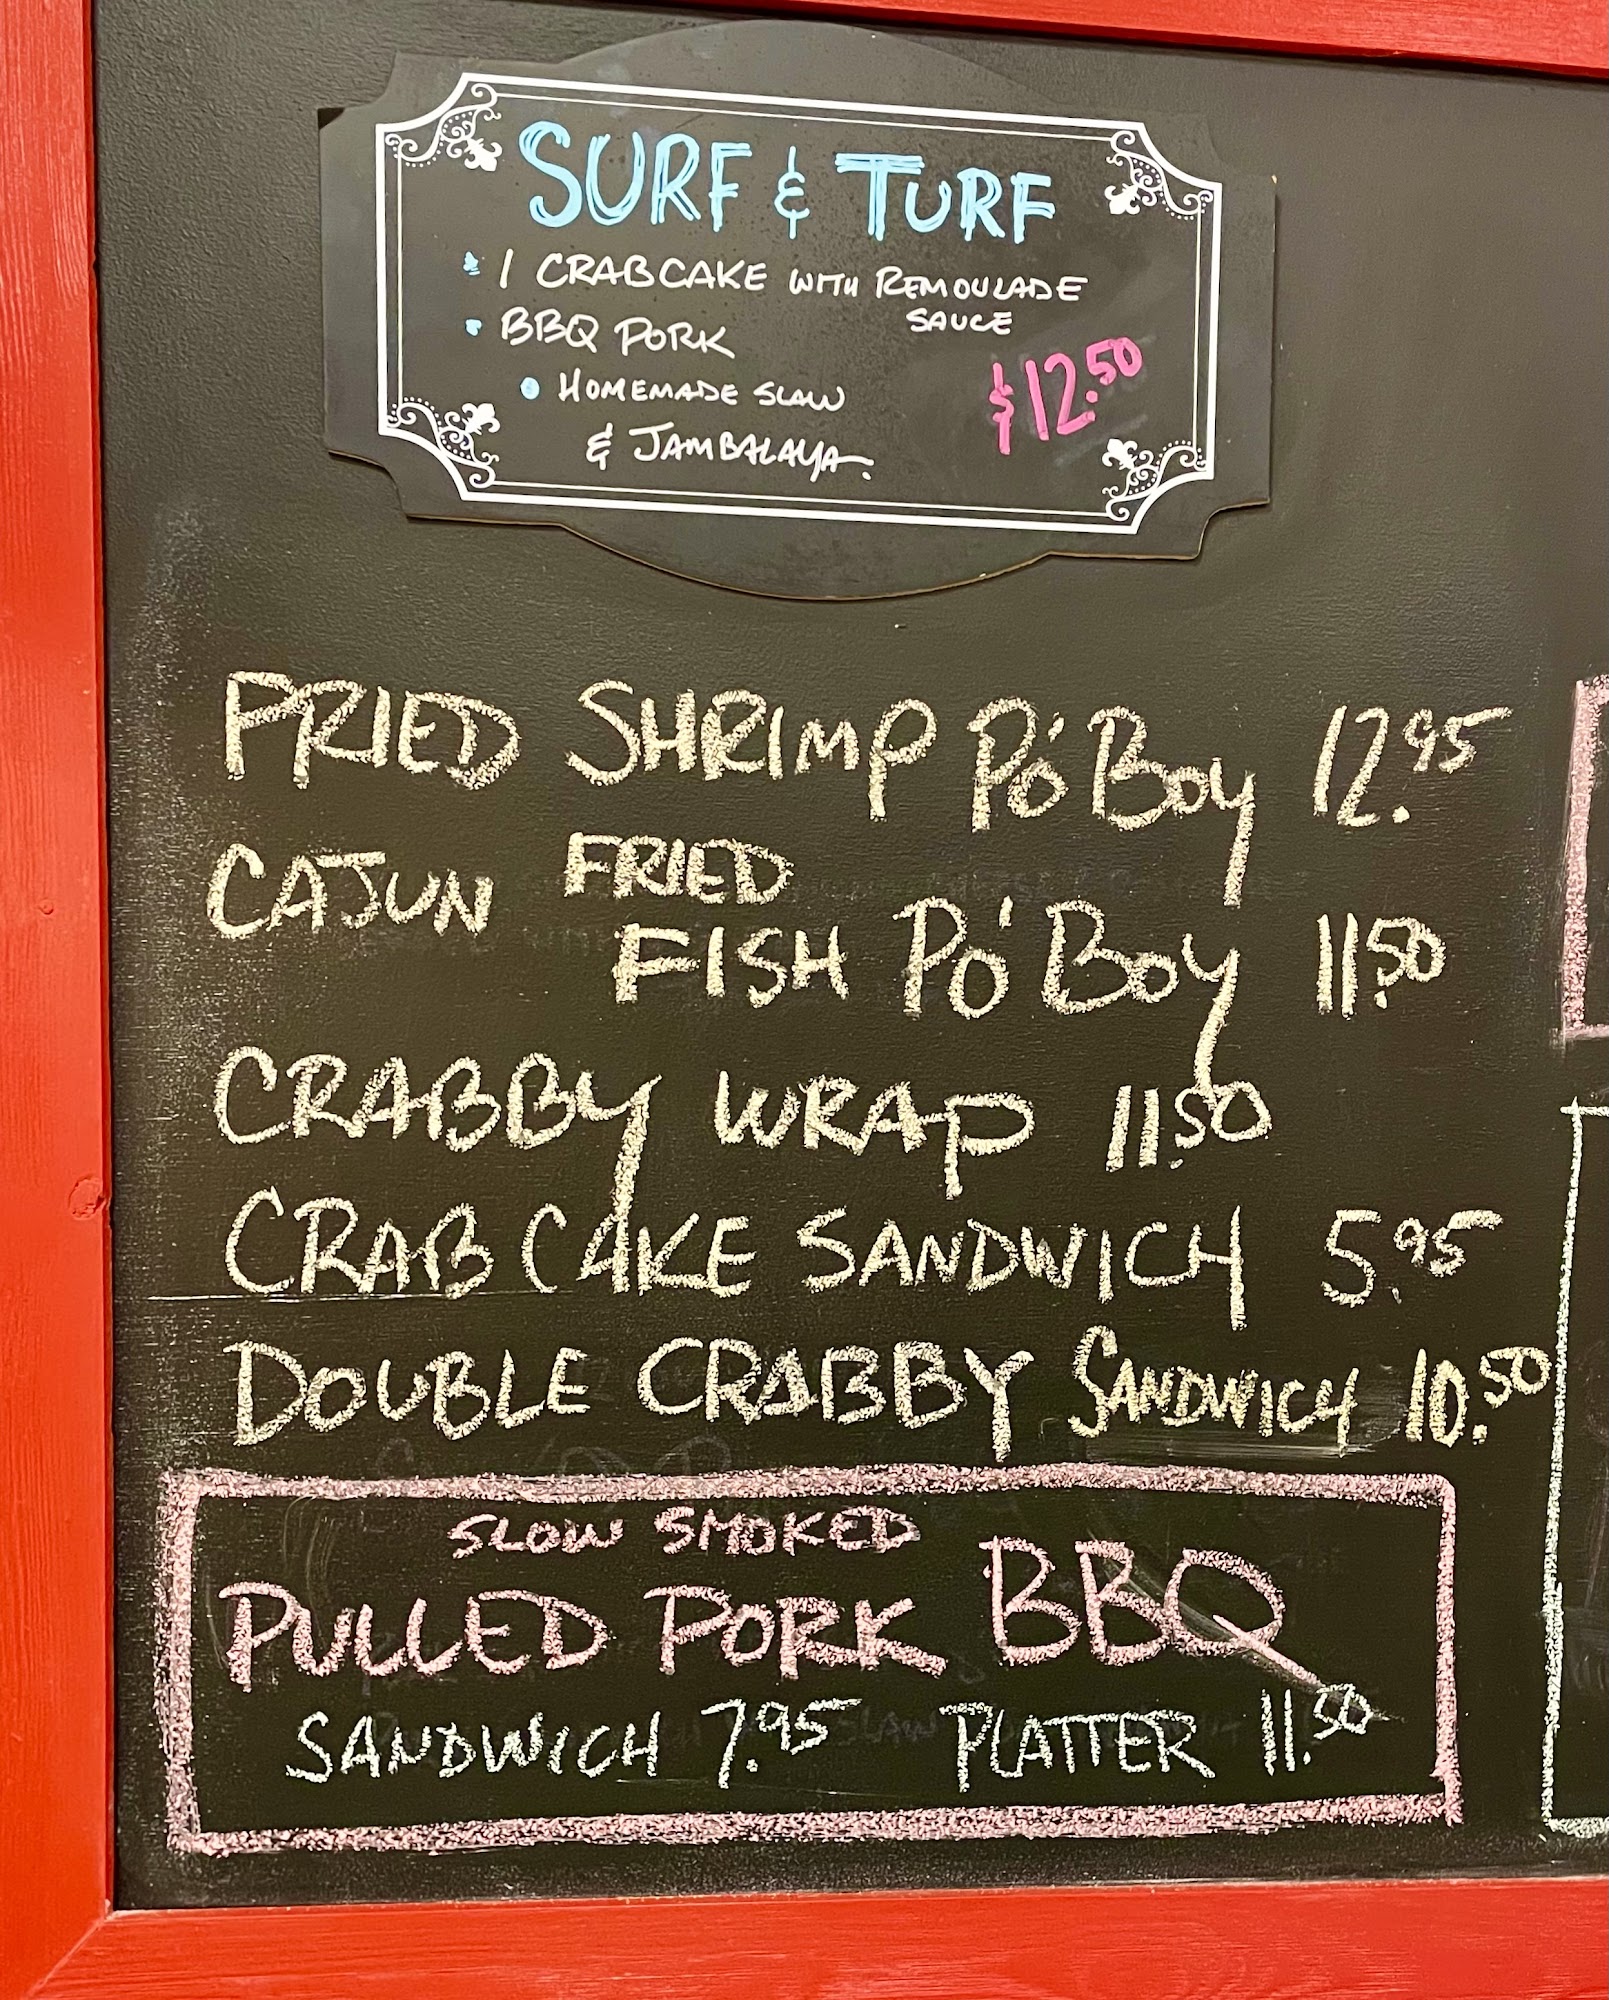 SURF & TURF
• 1 CRABCAKE WITH REMOULADE
SAUCE
• BBQ PORK
• HOMEMADE SLAW
& JAMBALAYA.
$12.50
FRIED SHRIMP PO'BOY 12.95
CAJUN FRIED
FISH PO'BOY 11.50
CRABBY WRAP 11.50
CRAB CAKE SANDWICH 5.95
DOUBLE CRABBY SANDWICH 10.50
SLOW SMOKED
PULLED PORK BBQ
SANDWICH 7.95 PLATTER 11.50